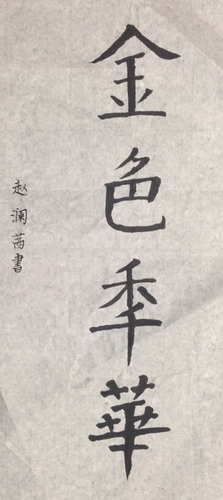 金色秊華
赵澜茜書